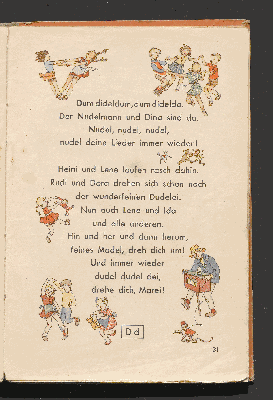 Dum dideldum, dum didelda.
Der Nudelmann und Dina sind da.
Nudel, nudel, nudel,
nudel deine Lieder immer wieder!
Heini und Lene laufen rasch dahin.
Rudi und Dora drehen sich schon nach
der wunderfeinen Dudelei.
Nun auch Lene und Ida
und alle anderen.
Hin und her und dann herum,
feines Madel, dreh dich um!
Und immer wieder
dudel dudel dei,
drehe dich, Marei!
D d
31